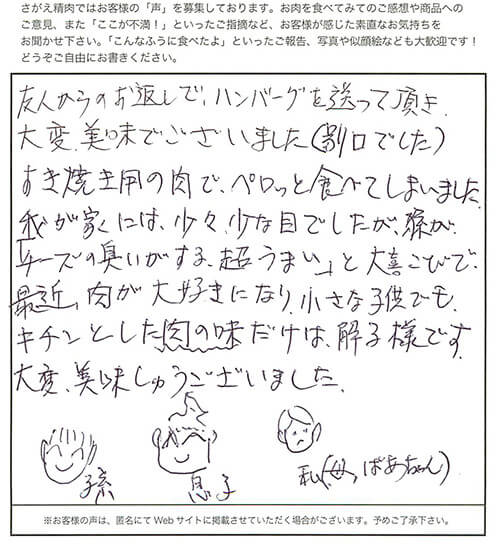 さがえ精肉ではお客様の「声」を募集しております。お肉を食べてみてのご感想や商品への
ご意見、また「ここが不満！」といったご指摘など、お客様が感じた素直なお気持ちを
お聞かせ下さい。「こんなふうに食べたよ」といったご報告、写真や似顔絵なども大歓迎です！
どうぞご自由にお書きください。
友人からのお返しで、ハンバーグを送って頂き、
大変、美味でございました（別口でした）
すき焼き用の肉で、ペロッと食べてしまいました。
我が家には、少々、少な目でしたが、孫が、
「チーズの臭いがする、超うまい」と大喜こびで、
最近、肉が大好きになり、小さな子供でも、
キチンとした肉の味だけは、解る様です。
大変、美味しゅうございました。
孫
息子
私（母、ばあちゃん）
※お客様の声は、匿名にてWebサイトに掲載させていただく場合がございます。予めご了承下さい。